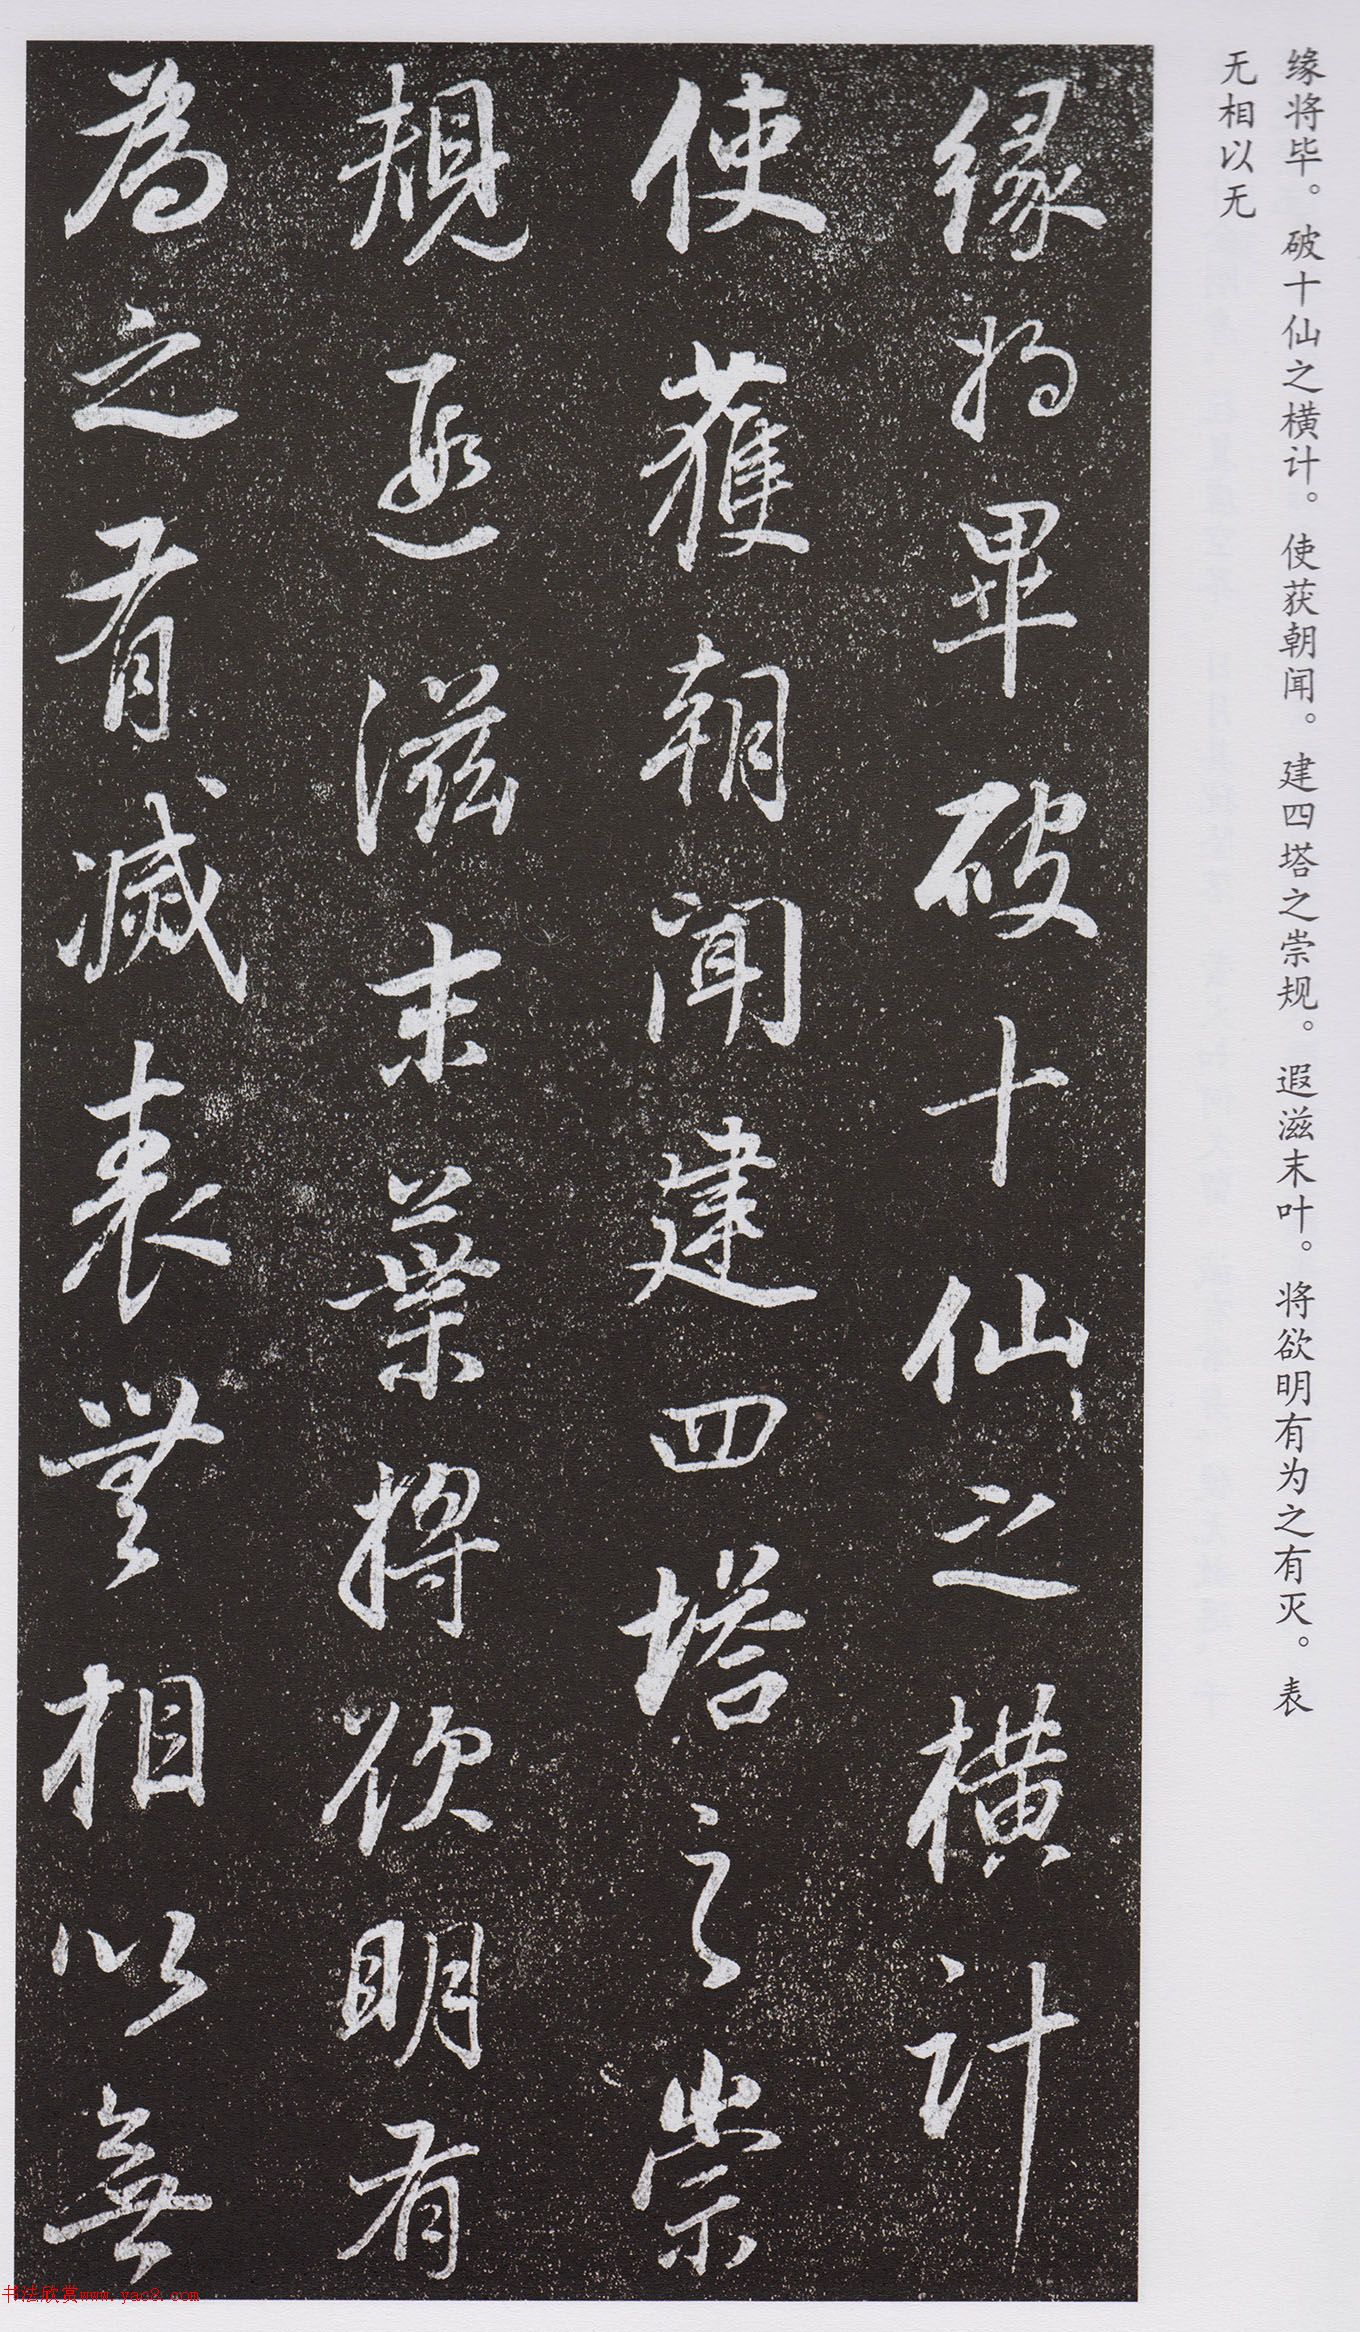 缘将毕。破十仙之横计。使获朝闻。建四塔之崇规。遐滋末叶。将欲明有为之有灭。表
无相以无
緣将畢破十仙之橫計
使獲朝聞建四塔之崇
規遐滋末葉將欲明有
為之有滅表無相以無
书法欣赏www.yac8.com